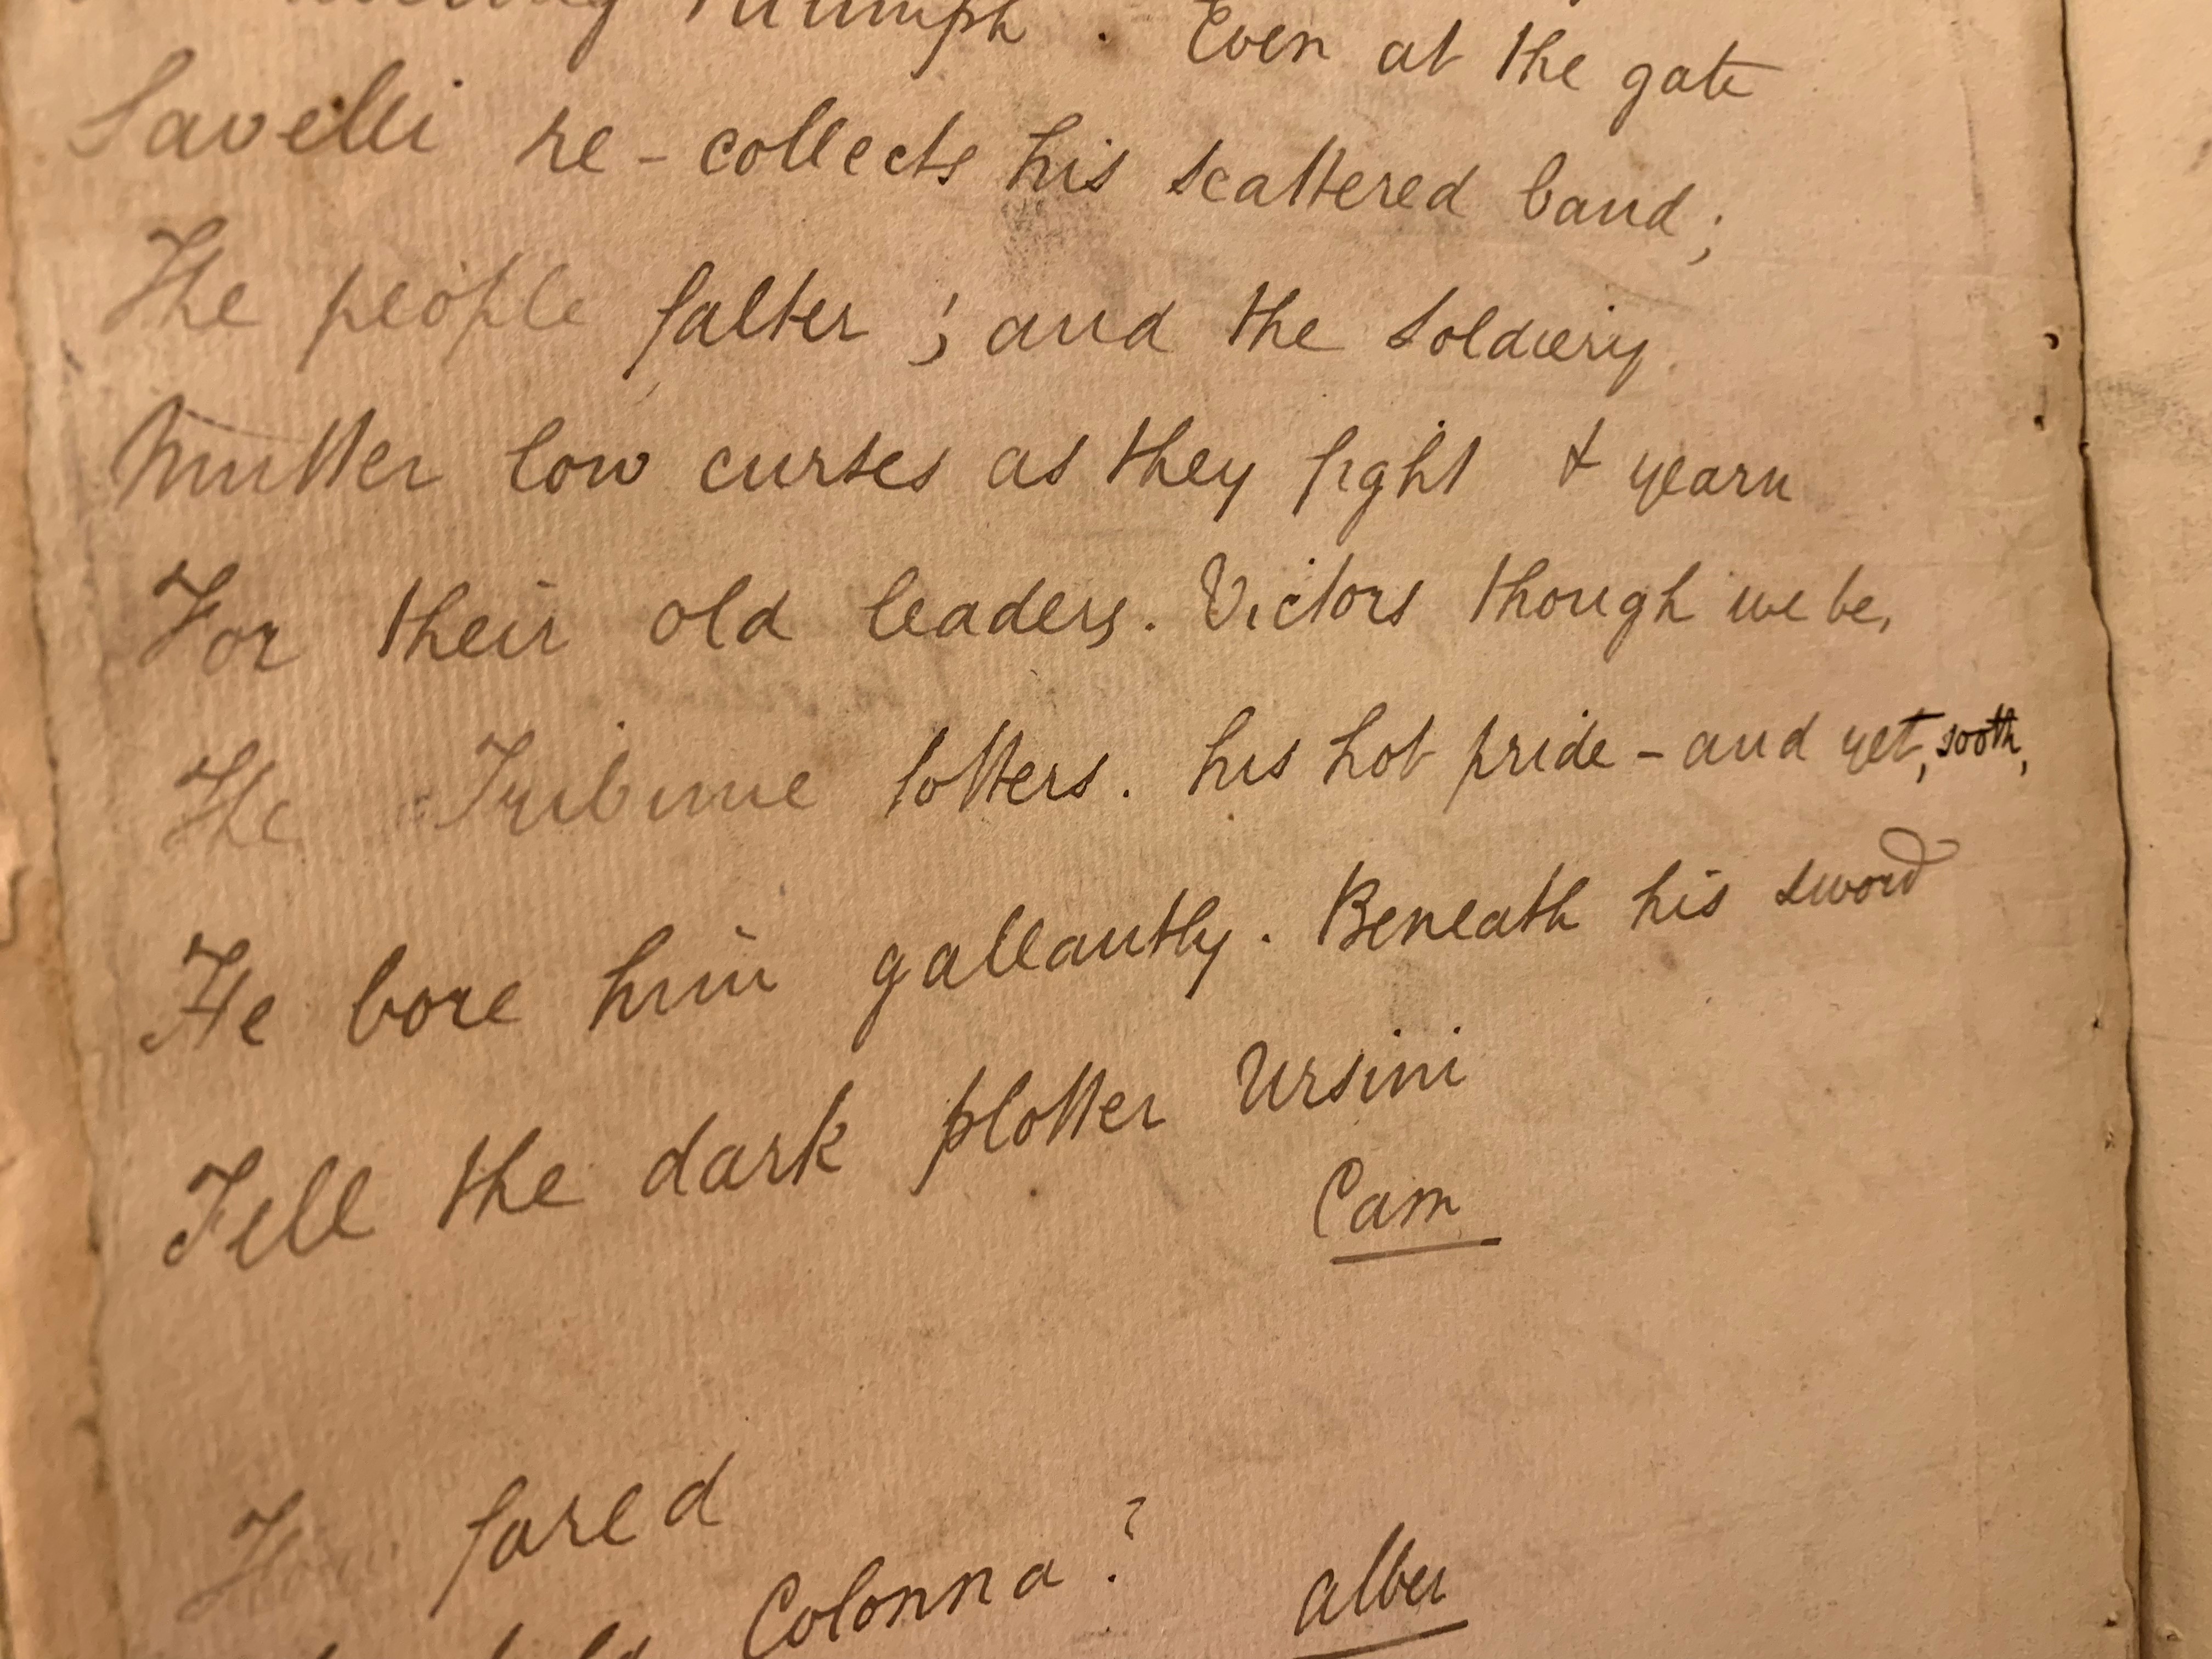 Triumph. Even at the gate
Savelli re-collects his scattered band;
The people falter; and the soldiery
Mutter low curses as they fight & yearn
For their old leaders. Victors though we be,
The Tribune totters. his hot pride - and yet, sooth,
He bore him gallantly. Beneath his sword
Fell the dark plotter Ursini
Cam
How fared
Colonna?
Alber